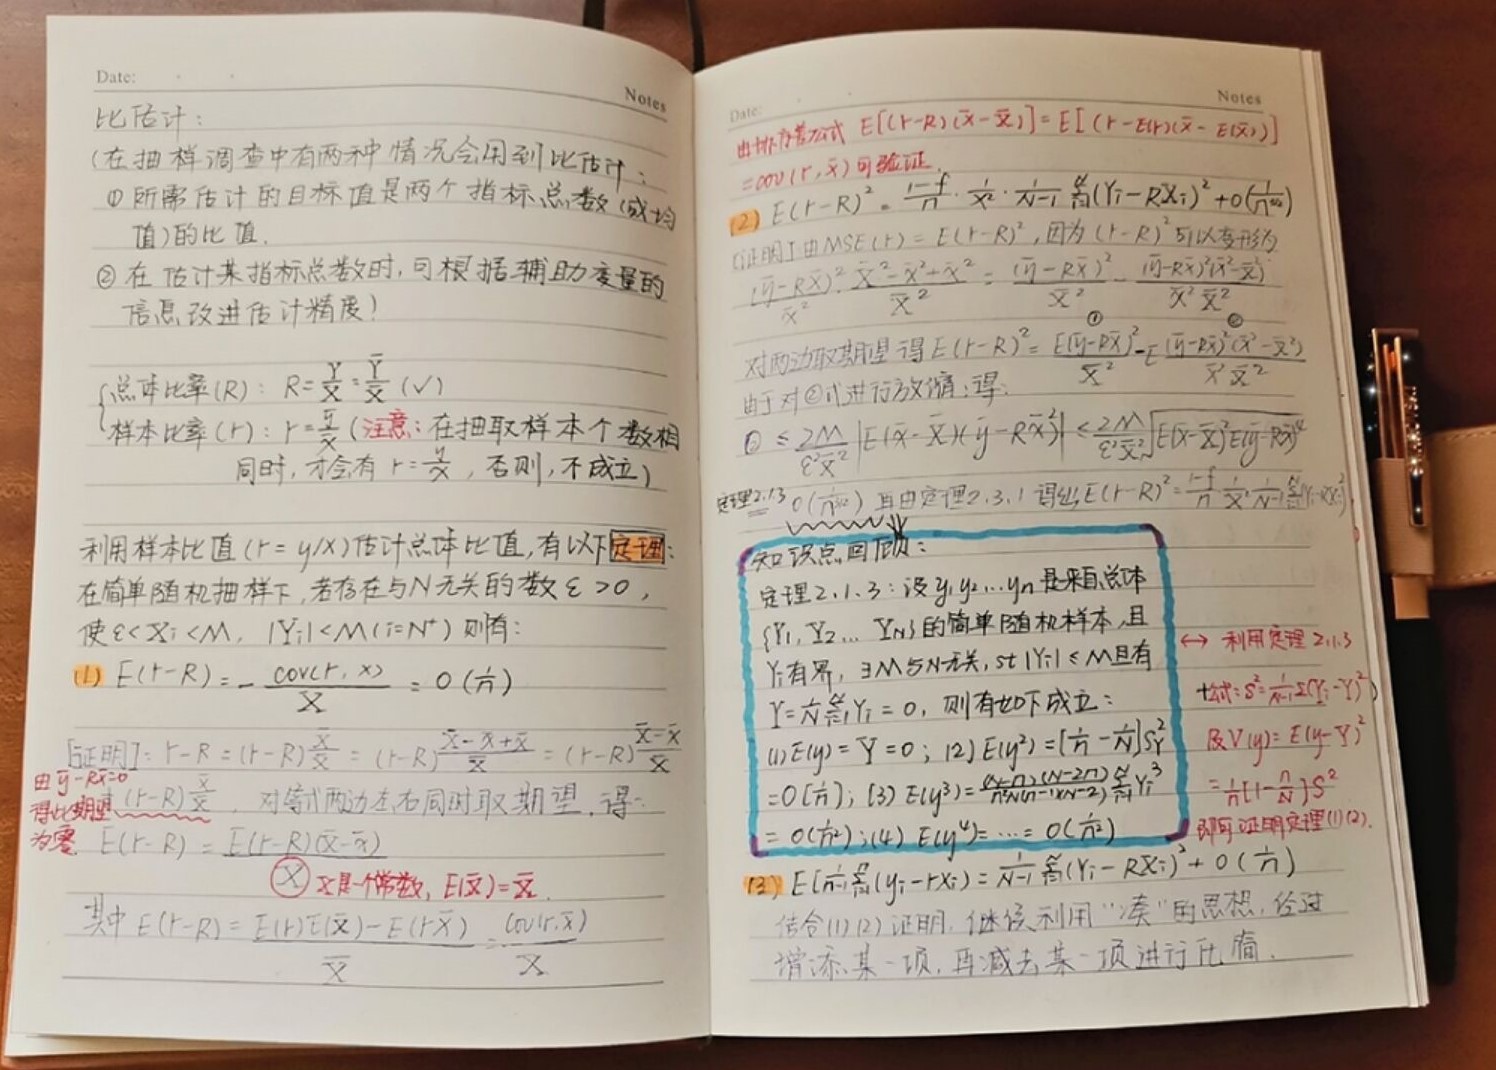 Date:
Notes
比估计:
(在抽样调查中有两种情况会用到比估计:
① 所需估计的目标值是两个指标总数(或均
值)的比值.
② 在估计某指标总数时,可根据辅助变量的
信息改进估计精度!
总体比率(R): R=Y/X=Ȳ/X̄ (√)
样本比率(r): r=ȳ/x̄ (注意:在抽取样本个数相
同时,才会有 r=y/x, 否则,不成立)
利用样本比值(r=y/x)估计总体比值,有以下定理:
在简单随机抽样下,若存在与N无关的数ε>0,
使ε<Xi<M, |Yi|<M(i=N⁺) 则有:
(1) E(r-R)=-cov(r,x)/X = O(1/n)
[证明]: r-R=(r-R)X̄/X̄=(r-R)(X̄-x̄+x̄)/X̄=(r-R)(X̄-x̄)/X̄
由ȳ-Rx̄=0
得此期望
为零
+(r-R)x̄/X̄, 对等式两边左右同时取期望,得:
E(r-R)=E(r-R)(X̄-x̄)/X̄
X̄是一个常数, E(x̄)=X̄.
其中E(r-R)=E(r)E(x̄)-E(rx̄)/X̄=cov(r,x̄)/X̄
Date:
Notes
由协方差公式 E[(r-R)(x̄-X̄)]=E[(r-E(r)(x̄-E(x̄))]
=cov(r,x̄)可验证.
(2) E(r-R)²=(1-f)/n·1/X̄²·1/(N-1) Σ(Yi-RXi)²+O(1/n^(3/2))
[证明]由MSE(r)=E(r-R)²,因为(r-R)²可以变形为
(ȳ-Rx̄)²/x̄²·(X̄²-x̄²+x̄²)/X̄²=(ȳ-Rx̄)²/X̄²-(ȳ-Rx̄)²(x̄²-X̄²)/x̄²X̄²
① ②
对两边取期望得E(r-R)²=E(ȳ-Rx̄)²/X̄²-E(ȳ-Rx̄)²(x̄²-X̄²)/x̄²X̄²
由于对②式进行放缩:得:
② ≤ 2M/ε²X̄²|E(x̄-X̄)(ȳ-Rx̄²)| ≤ 2M/ε²X̄²√E(x̄-X̄)²E(ȳ-Rx̄)⁴
定理2.1.3 O(1/n^(3/2)) 再由定理2.3.1得出E(r-R)²=(1-f)/n 1/X̄² 1/(N-1) Σ(Yi-RXi)²
知识点回顾:
定理2.1.3:设y₁y₂…yn是来自总体
{Y₁,Y₂…YN}的简单随机样本,且
Yi有界,∃M与N无关,st|Yi|≤M且有
Ȳ=1/N ΣYi=0, 则有如下成立:
(1)E(y)=Ȳ=0; (2)E(y²)=[1/n-1/N]S²Y
=O(1/n); (3)E(y³)=(N-n)(N-2n)/n²N(N-1)(N-2) ΣYi³
=O(1/n²);(4) E(y⁴)=…=O(1/n²)
↔ 利用定理2.1.3
+公式:S²=1/(N-1)Σ(Yi-Ȳ)²
及V(y)=E(y-Ȳ)²
=1/n[1-n/N]S²
即可证明定理(1)(2).
(3) E[1/(n-1) Σ(yi-rxi)=1/(N-1) Σ(Yi-RXi)²+O(1/n)
结合(1)(2)证明,继续利用“凑”的思想,经过
增添某一项,再减去某一项进行化简.